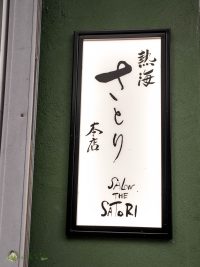 熱海
さとり
本店
SALON
THE
SATORI